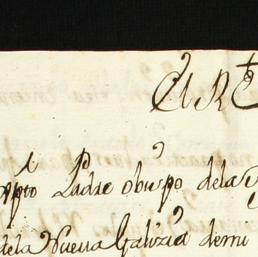 xpto Padre obispo dela
dela Nueua Galizia demi